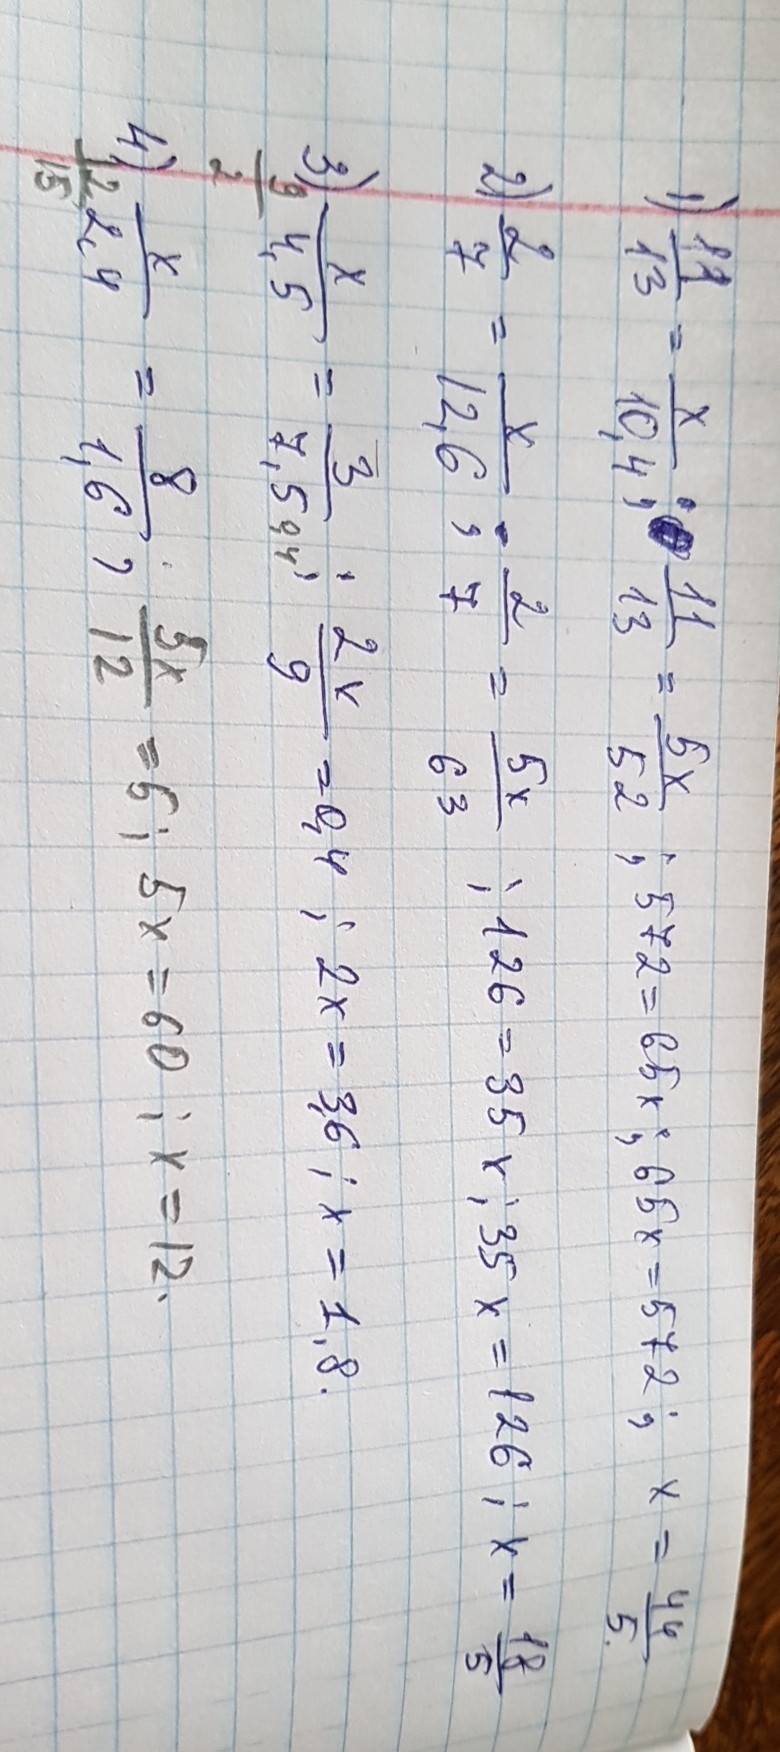 1) 11/13 = x/10,4; 11/13 = 5x/52; 572=65x; 65x=572; x = 44/5.
2) 2/7 = x/12,6; 2/7 = 5x/63; 126=35x; 35x=126; x= 18/5
3) x/4,5 = 3/7,5; 2x/9 =0,4; 2x=3,6; x=1,8.
9/2 0,4
4) x/2,4 = 8/1,6; 5x/12 =5; 5x=60; x=12.
12/15